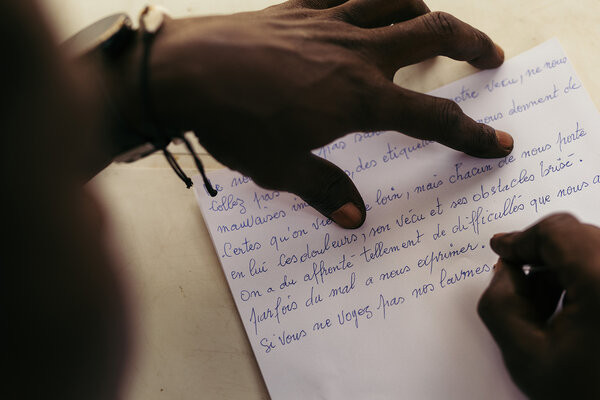 otre vecu, ne nous
Collez pas sur des etiquettes nous donnent de
mauvaises im
Certes qu'on vie de loin, mais chacun de nous porte
en lui ces douleurs, son vécu et ses obstacles brisé.
On a du affronté tellement de difficultés que nous a
parfois du mal a nous exprimer.
Si vous ne voyez pas nos larmes